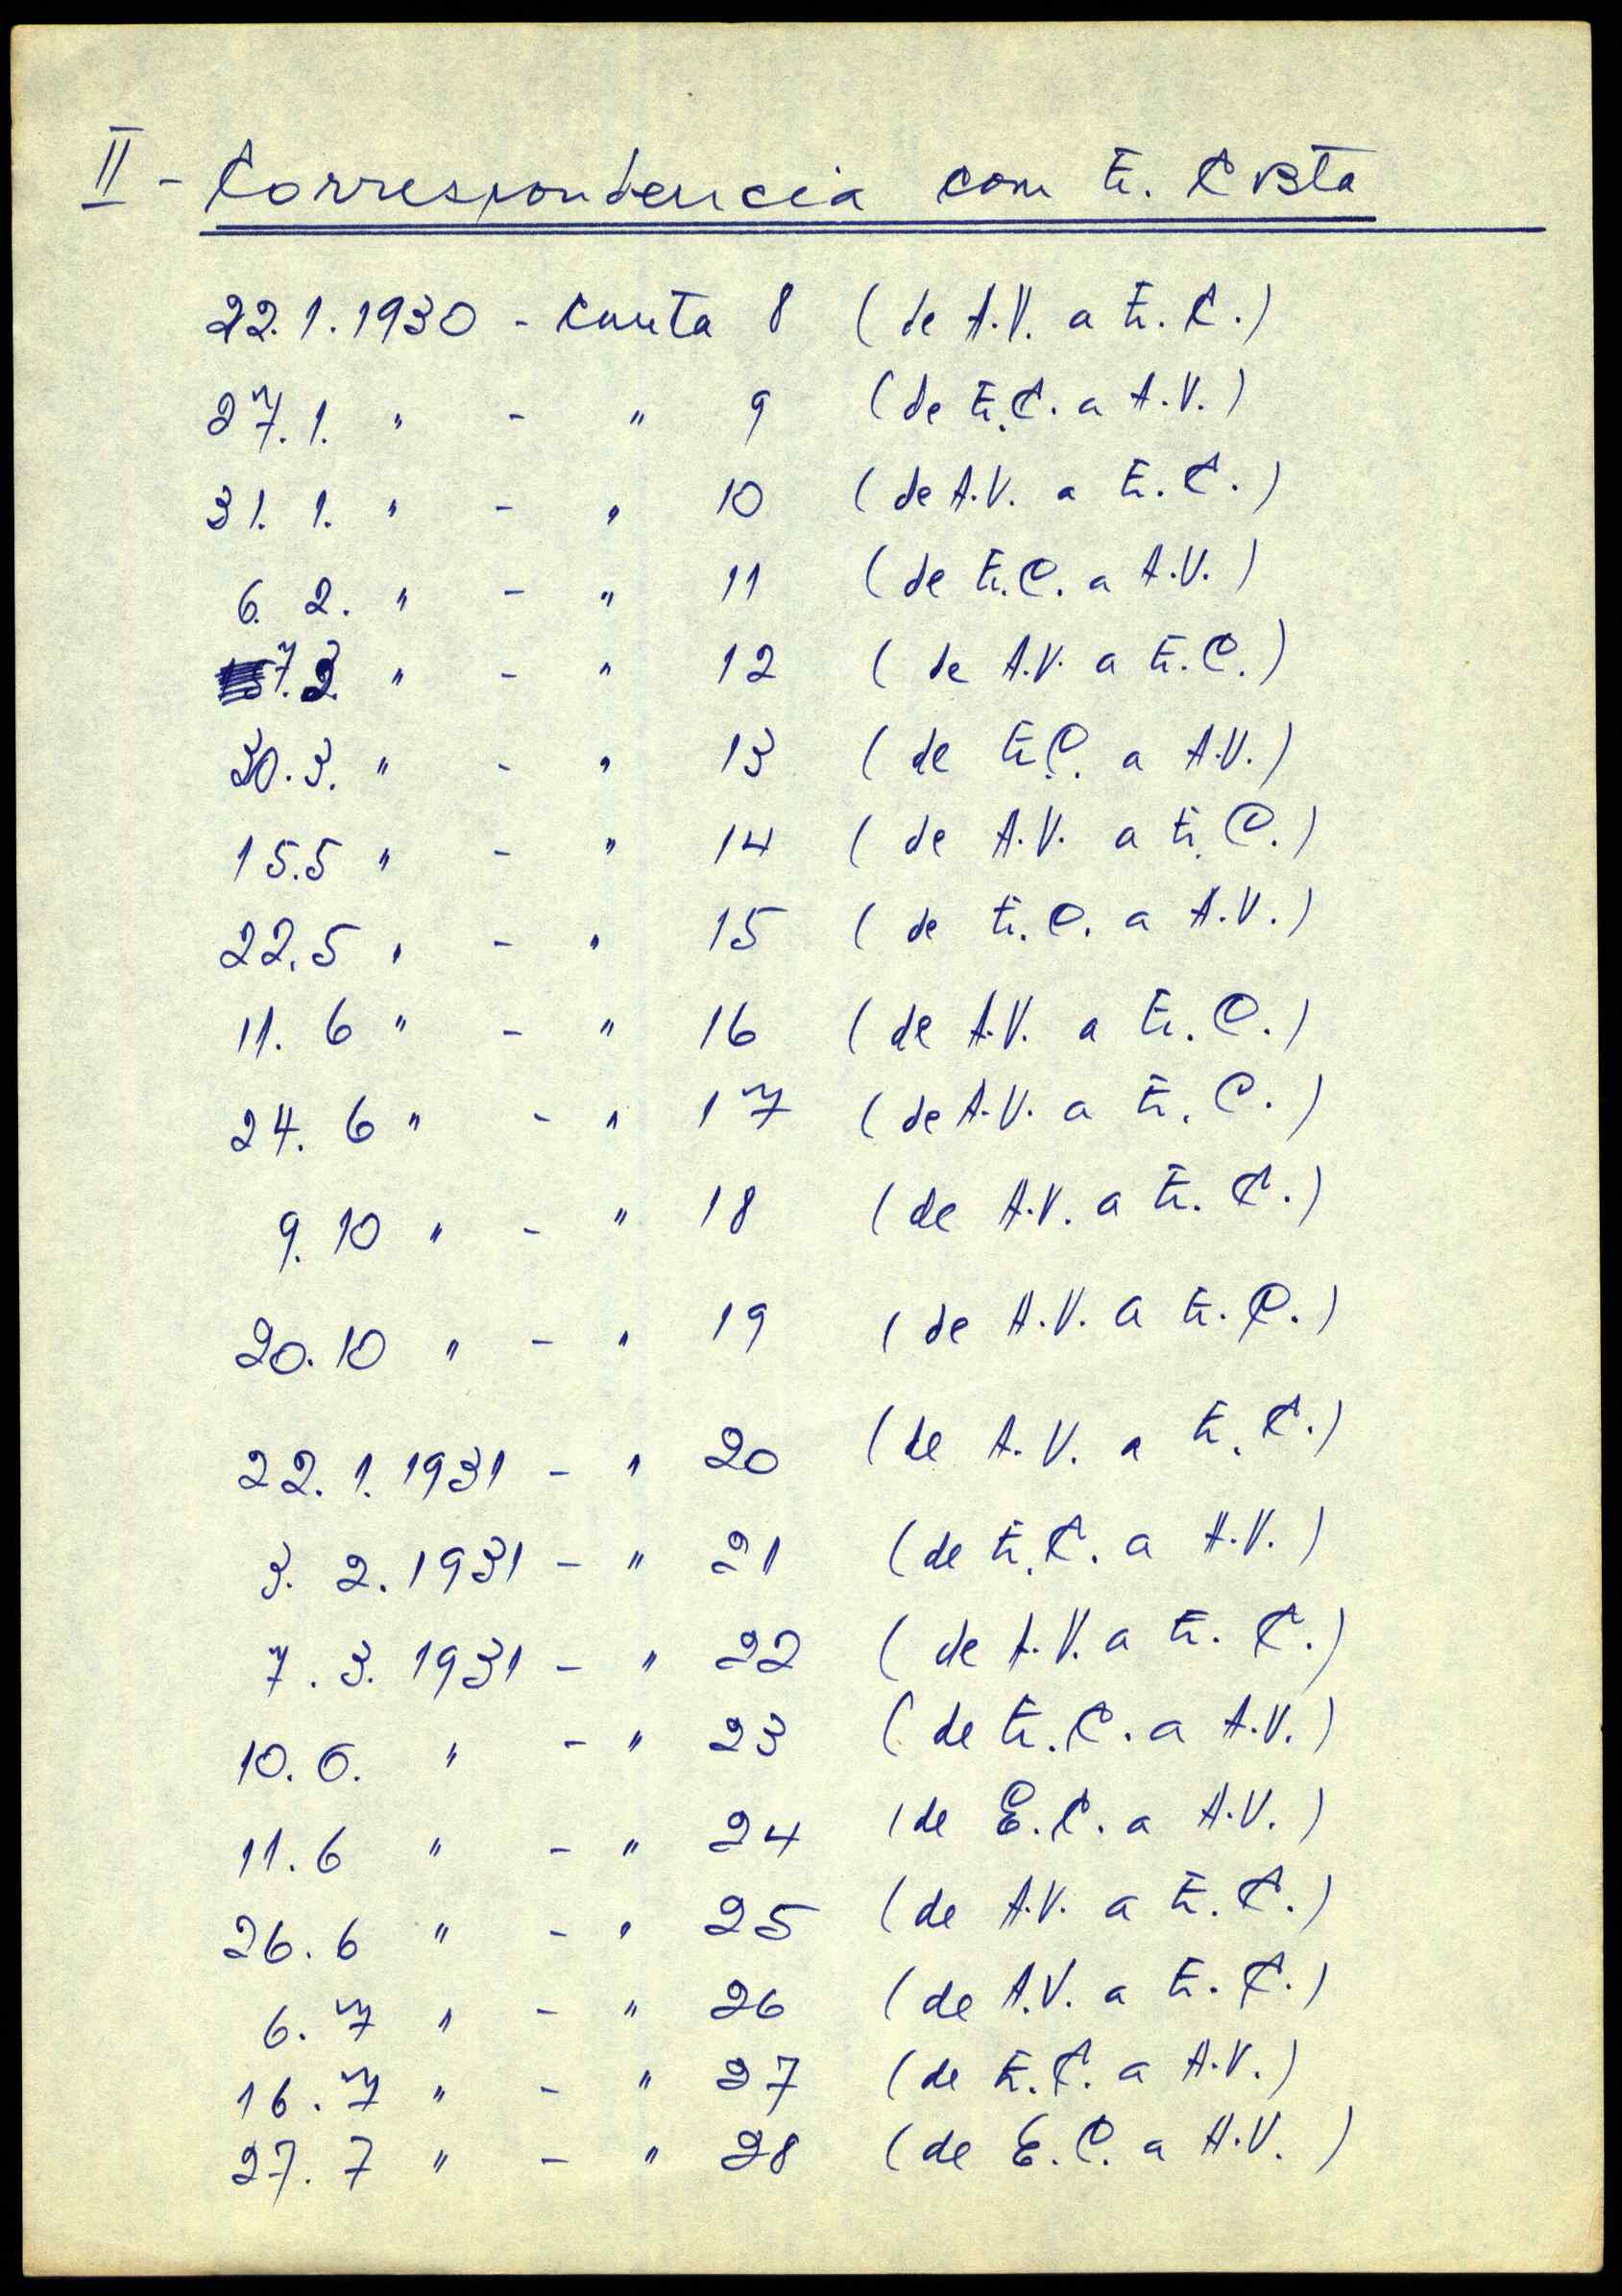 II - Correspondencia com E. Costa
22.1.1930 - Carta 8 (de A.V. a E.C.)
27.1. " - " 9 (de E.C. a A.V.)
31.1. " - " 10 (de A.V. a E.C.)
6.2. " - " 11 (de E.C. a A.V.)
7.3. " - " 12 (de A.V. a E.C.)
30.3. " - " 13 (de E.C. a A.V.)
15.5 " - " 14 (de A.V. a E.C.)
22.5 " - " 15 (de E.C. a A.V.)
11.6 " - " 16 (de A.V. a E.C.)
24.6 " - " 17 (de A.V. a E.C.)
9.10 " - " 18 (de A.V. a E.C.)
20.10 " - " 19 (de A.V. a E.C.)
22.1.1931 - " 20 (de A.V. a E.C.)
3.2.1931 - " 21 (de E.C. a A.V.)
7.3.1931 - " 22 (de A.V. a E.C.)
10.6. " - " 23 (de E.C. a A.V.)
11.6 " - " 24 (de E.C. a A.V.)
26.6 " - " 25 (de A.V. a E.C.)
6.7 " - " 26 (de A.V. a E.C.)
16.7 " - " 27 (de E.C. a A.V.)
27.7 " - " 28 (de E.C. a A.V.)